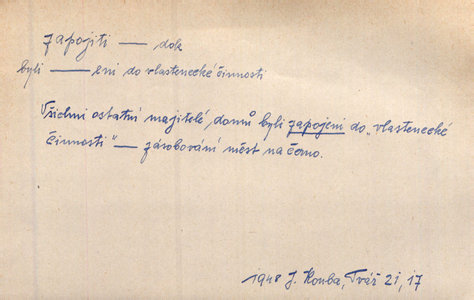 zapojiti — dok
byli — eni do vlastenecké činnosti
Všichni ostatní majitelé domů byli zapojeni do „vlastenecké
činnosti" — zásobování měst na černo.
1948 J. Kouba, Tvář 21, 17